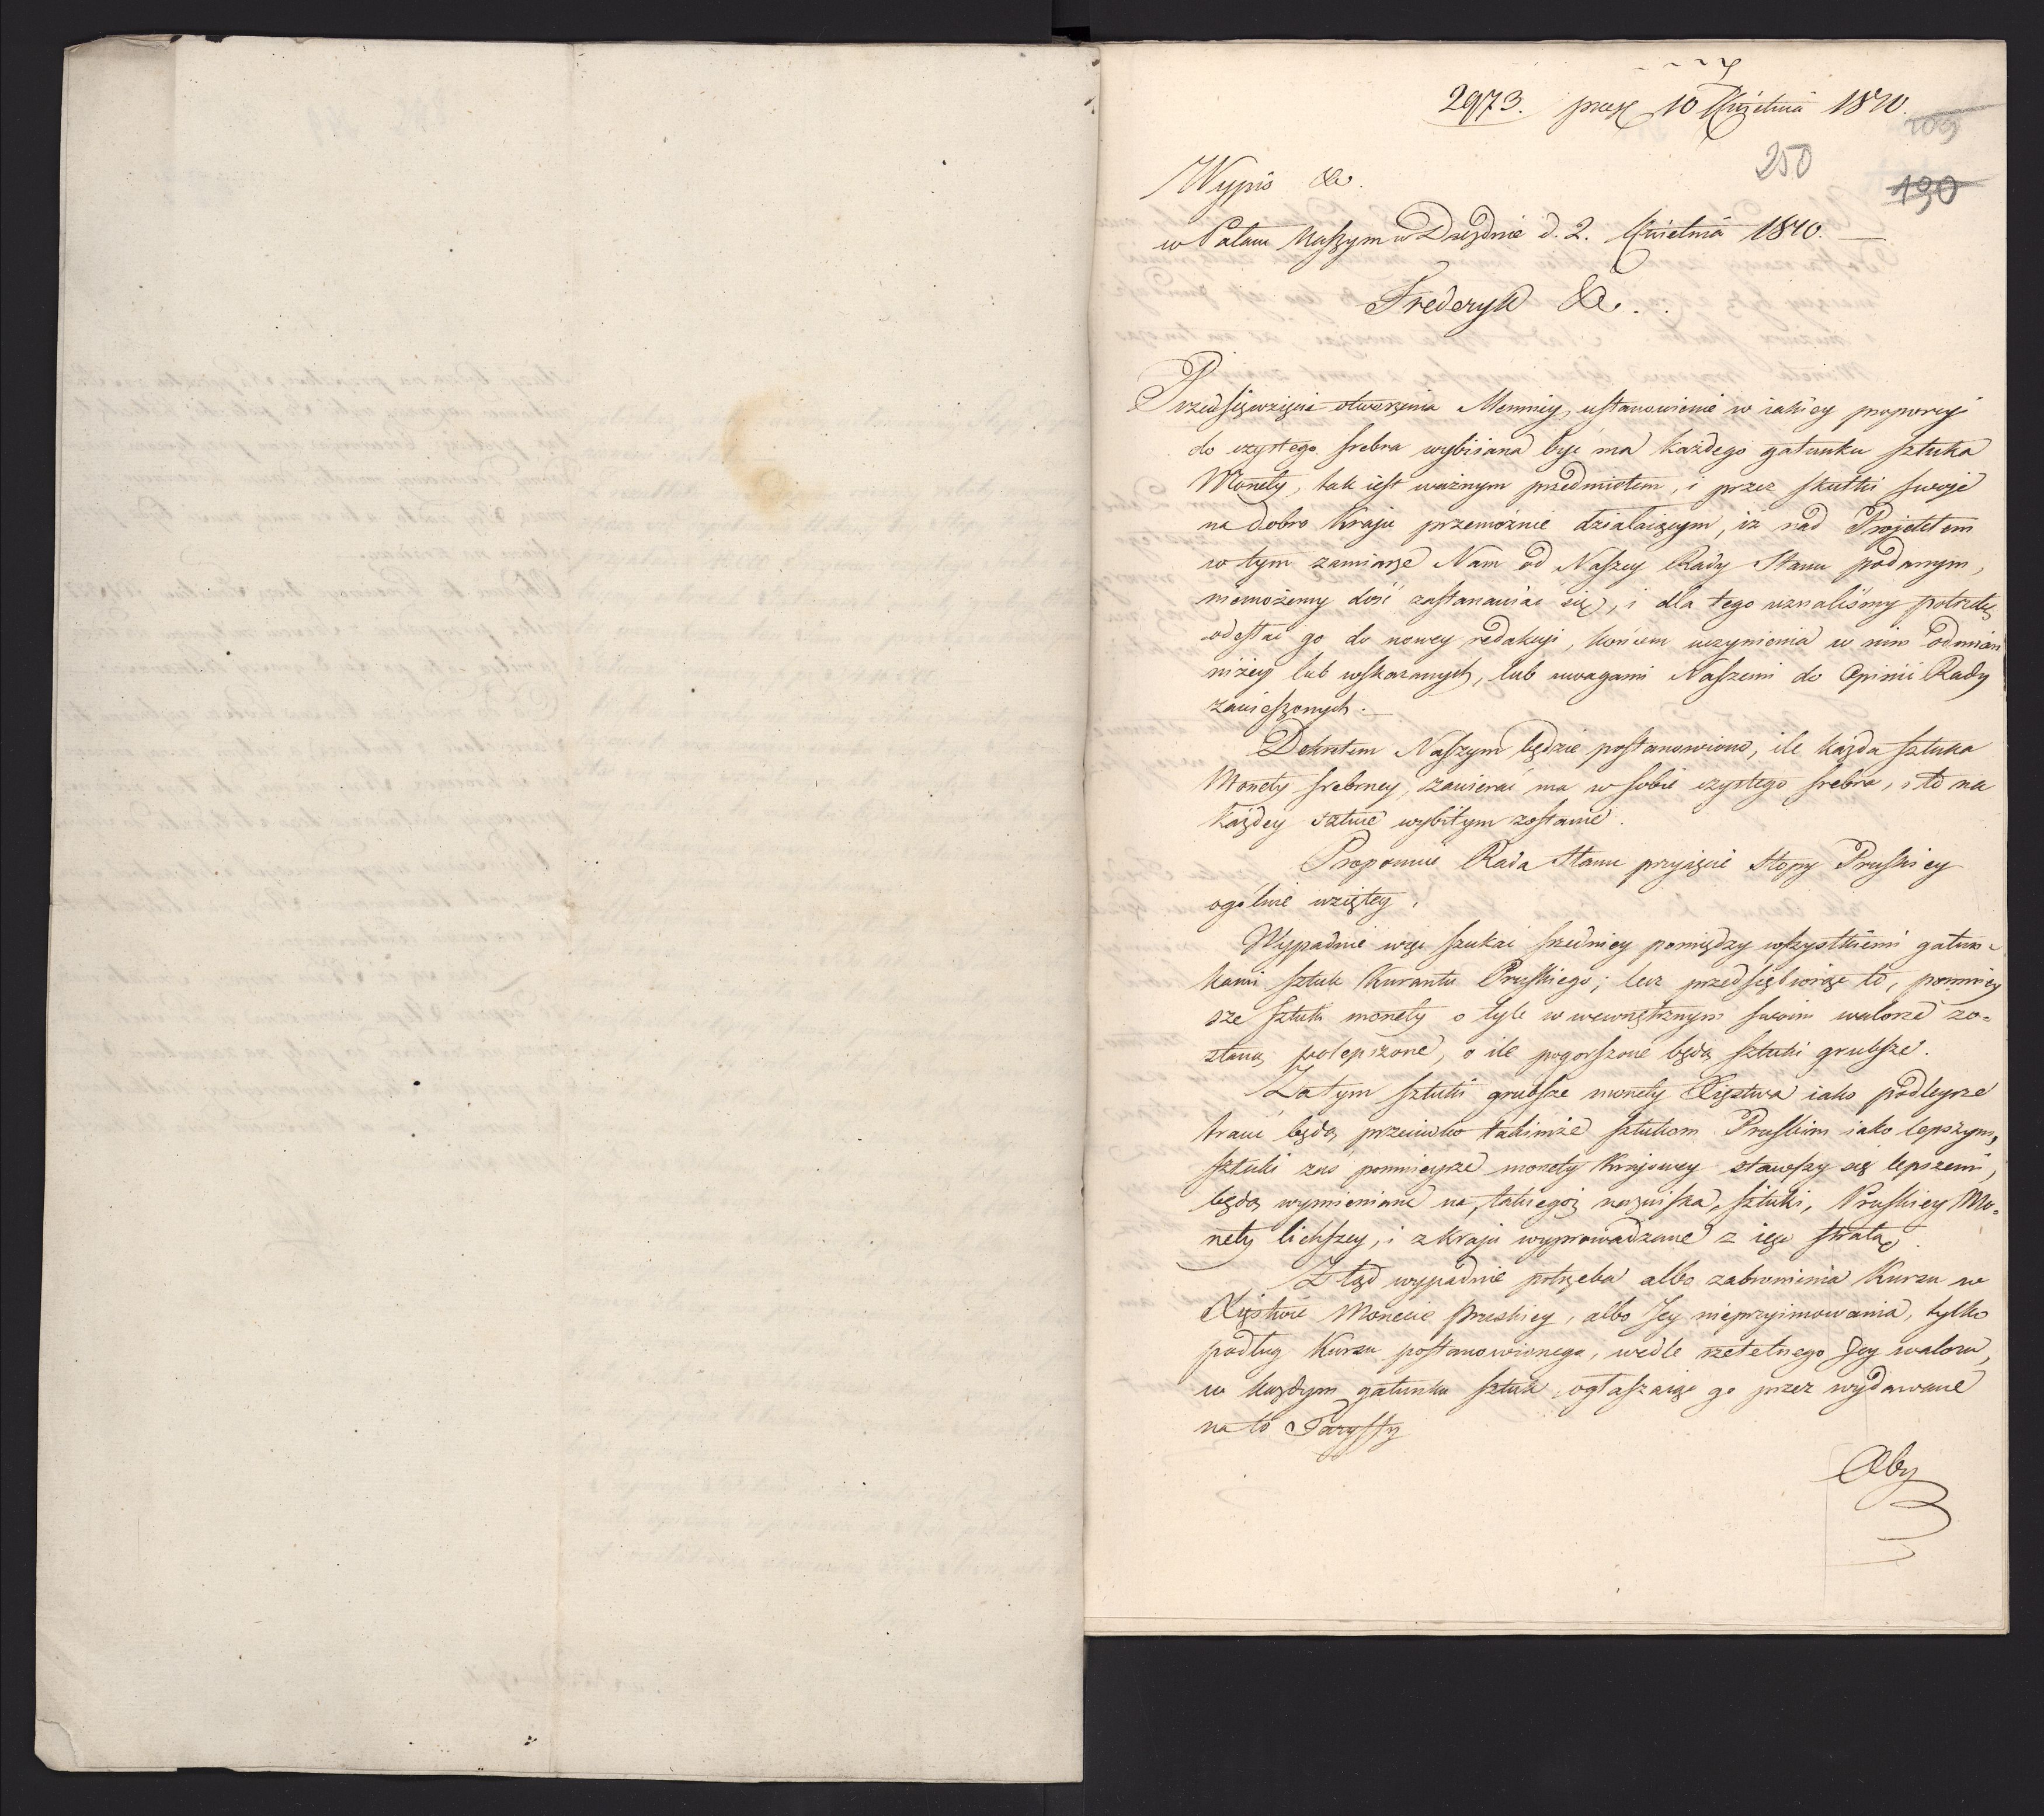 2973. præs 10 Kwietnia 1810.
209
250
190
Wypis &c.
w Pałacu Naszym w Dreźnie d. 2. Kwietnia 1810.
Frederyk &c.
Przedsięwzięcie otworzenia Mennicy, ustanowienie w iakiey proporcyi
do czystego srebra wybiiana być ma każdego gatunku sztuka
Monety, tak iest ważnym przedmiotem, i przez skutki swoje
na dobro Kraju przemożnie działaiącym, iż nad Projektem
w tym zamiarze Nam od Naszey Rady Stanu podanym,
niemożemy dość zastanawiać się, i dla tego uznaliśmy potrzebę
odesłać go do nowey redakcyi, końcem uczynienia w nim odmian
niżey lub wskazanych, lub uwagami Naszemi do Opinii Rady
zawieszonych. —
Dekretem Naszym będzie postanowiono, ile każda sztuka
Monety srebrney, zawierać ma w sobie czystego srebra, i to na
każdey sztuce wybitym zostanie.
Proponuie Rada Stanu przyięcie Stopy Pruskiey
ogólnie wziętey.
Wypadnie więc szukać średnicy pomiędzy wszystkiemi gatun-
kami sztuk Kurantu Pruskiego; lecz przedsiębiorąc to, pomniey
sze sztuki monety o tyle w wewnętrznym swoim walorze zo-
staną polepszone, o ile pogorszone będą sztuki grubsze.
Zatym sztuki grubsze monety Xięstwa iako podleysze
tracić będą przeciwko takimże sztukom Pruskim iako lepszym,
sztuki zaś pomnieysze monety Krajowey stawszy się lepszemi,
będą wymieniane na, takiegoż nazwiska, sztuki, Pruskiey Mo-
nety lichszey, i z kraju wyprowadzane z iego stratą.
Ztąd wypadnie potrzeba albo zabronienia Kursu w
Xięstwie Monecie Pruskiey, albo Jey nieprzyimowania, tylko
podług Kursu postanowionego, wedle rzetelnego Jey waloru,
w każdym gatunku sztuk, ogłaszaiąc go przez wydawane
na to Taryffy
Aby